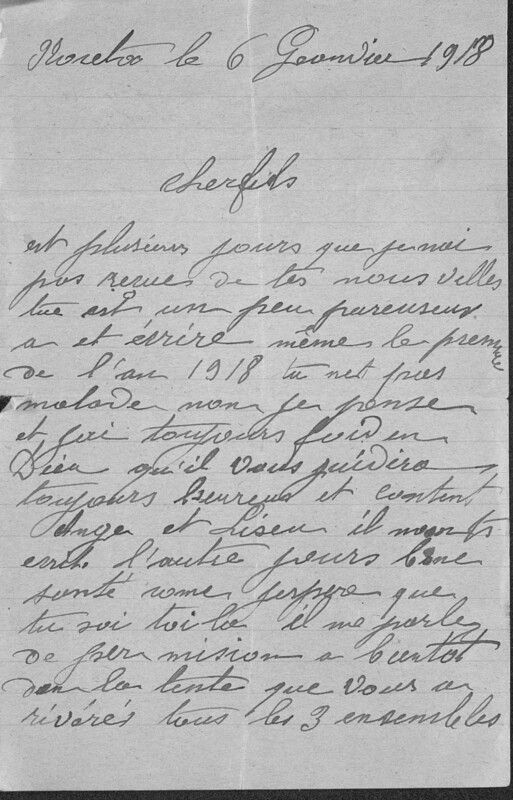 le 6 Geanvier 1918
cher fils
est plusieurs jours que je nai
pas recues de tes nous velles
tue est un peu pareuseux
a et écrire mêmes le premier
de l'an 1918 tu net pas
malade non je pense
et jai toujours foid en
Dieu qu'il vous
toujours heureux et content
Ange et Liseu il
écrit l'autre jours bone
santé come jespere que
tu soi toi la il me parle
de per mision a bientot
dan la tente que vous a
rivérés tous les 3 ensembles